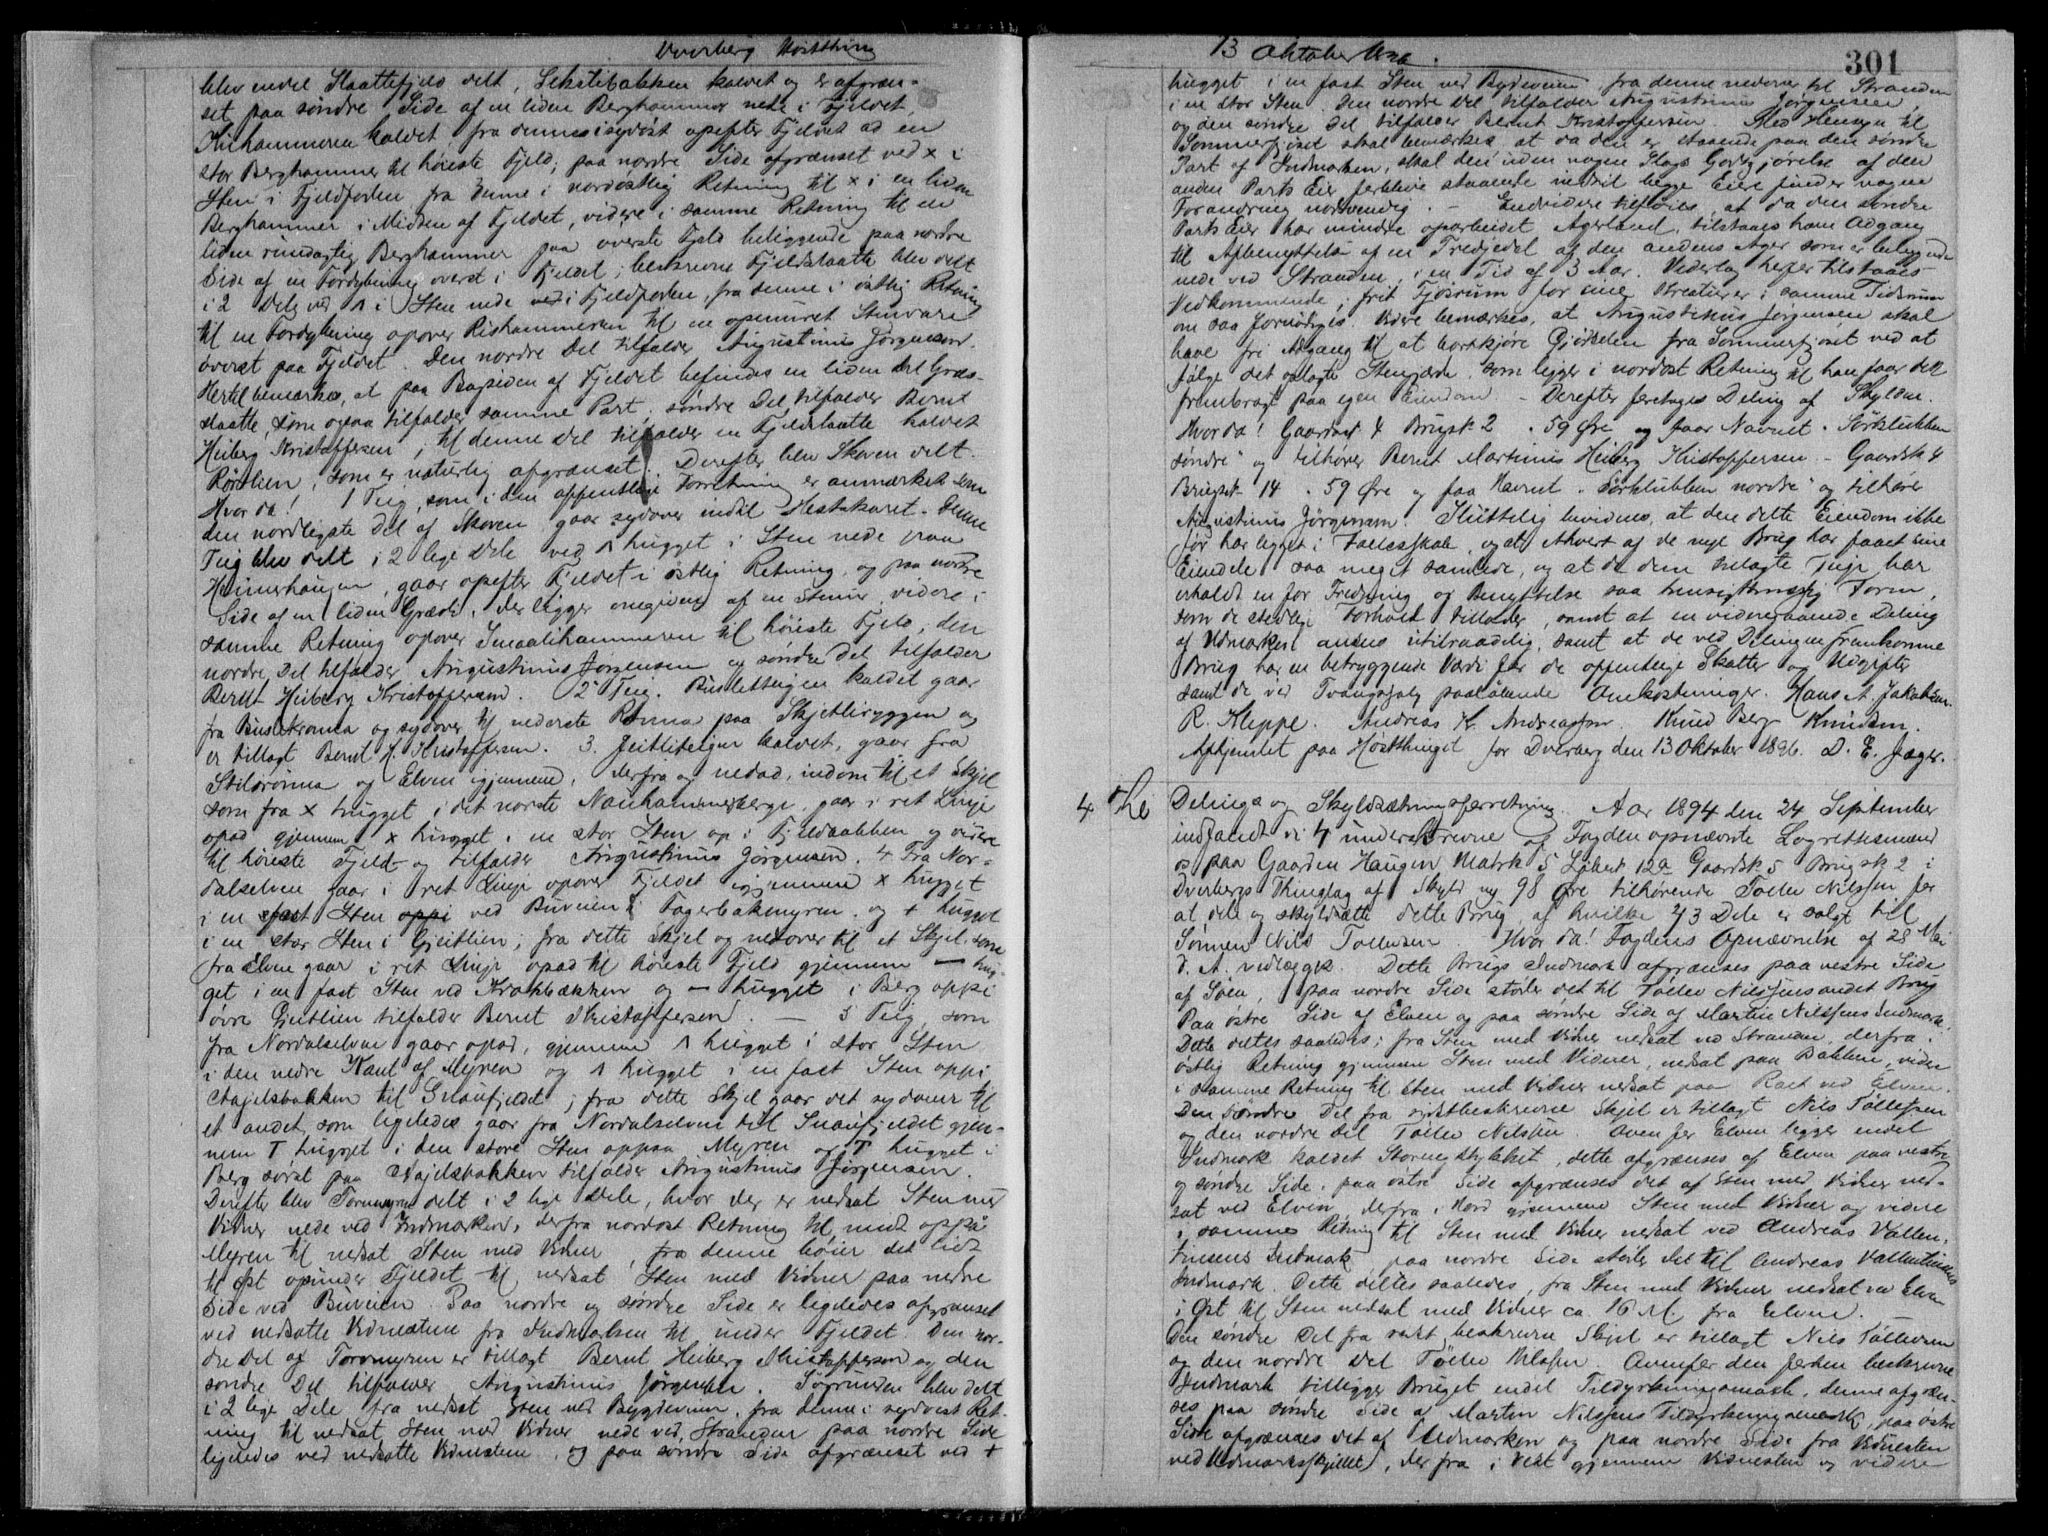 Dverberg Høstthing
blev endel Slaattefjeld delt, Sekstibakken kaldet og er afgræn-
set paa søndre Side af en liden Berghammer nede i Fjeldet,
kaldet, fra denne i sydøst opefter Fjeldet ad en
stor Berghammer til høieste Fjeld; paa nordre Side afgrænset ved x i
Sten i Fjeldfoden fra denne i nordøstlig Retning til x i en liden
Berghammer i Midten af Fjeldet, videre i samme Retning til en
liden rundagtig Berghammer paa øverste Fjeld beliggende paa nordre
Side af en Fordybning øverst i Fjeldet; beskrevne Fjeldslaatte blev delt
i 2 Dele ved 1 i Sten nede ved i Fjeldfoden, fra denne i østlig Retning
til en Fordybning opover Rishammeren til en opmuret Stenvare
øverst paa Fjeldet. Den nordre Del tilfalder Augustinus Jørgensen.
Hertil bemærkes, at paa Bagsiden af Fjeldet befindes en liden Del Græs-
slaatte, som ogsaa tilfalder samme Part. søndre Del tilfalder Bernt
Heiberg Kristoffersen; til denne Del tilfalder en Fjeldslaatte kaldet
Rønlien, som er naturlig afgrænset. Derefter blev Skoven delt.
Hvor da! 1 Teig, som i den offentlige Forretning er anmærket som
den nordligste Del af Skoven gaar sydover indtil Hestskaret. Denne
Teig blev delt i 2 lige Dele ved 1 hugget i Sten nede paa
gaar opefter Fjeldet i østlig Retning, og paa nordre
Side af en liden Græde, der ligger omgiven af en Stenur, videre i
samme Retning opover Smaalihammeren til høieste Fjeld; den
nordre Del tilfalder Augustinus Jørgensen og søndre Del tilfalder
Bernt Heiberg Kristoffersen. 2 Teig. kaldet gaar
fra og sydover til nederste Rønna paa Skjetliryggen og
er tillagt Bernt H. Kristoffersen. 3. Jeitliteigen kaldet, gaar fra
og Elven igjennem, derfra og nedad, indom til et Skjel
som fra x hugget i det norste gaar i ret Linje
opad gjennem x hugget i en stor Sten op i Fjeldbakken og videre
til høieste Fjeld og tilfalder Augustinus Jørgensen. 4 Fra Nor-
dalselven gaar i ret Linje opover Fjeldet igjennem x hugget
i en fast Sten oppi ved Buveien i Fagerbakmyren og + hugget
i en stor Sten i Gjeitlien; fra dette Skjel og nedover til et Skjel, som
fra Elven gaar i ret Linje opad til høieste Fjeld gjennem — hug-
get i en fast Sten ved Krakbækken og — hugget i Berg oppi
øvre Gjeitlien tilfalder Bernt Kristoffersen. — 5 Teig, som
fra Nordalselven gaar opad, gjennem 1 hugget i stor Sten
i den nedre Kant af Myren og 1 hugget i en fast Sten oppi
til Snaufjeldet; fra dette Skjel gaar det sydover til
et andet, som ligeledes gaar fra Nordalselven til Snaufjeldet gjen-
nem T hugget i den store Sten oppaa Myren og T hugget i
Berg sørst paa tilfalder Augustinus Jørgensen.
Derefter blev Torvmyren delt i 2 lige Dele, hvor der er nedsat Sten med
Vidner nede ved Indmarken, derfra nordost Retning til midt oppi
Myren til nedsat Sten med Vidner, fra denne bøier det lidt
til Øst opunder Fjeldet til nedsat Sten med Vidner paa nedre
Side ved Buveien. Paa nordre og søndre Side er ligeledes afgrænset
ved nedsatte Vidnesten fra Indmarken til under Fjeldet. Den nor-
dre Del af Torvmyren er tillagt Bernt Heiberg Kristoffersen og den
søndre Del tilfalder Augustinus Jørgensen. Søgrunden blev delt
i 2 lige Dele fra nedsat Sten ved Bygdeveien, fra denne i sydvest Ret-
ning til nedsat Sten med Vidner nede ved Stranden paa nordre Side
ligeledes ved nedsatte Vidnesten, og paa søndre Side afgrænset ved +
13 Oktober 1896.
301
hugget i en fast Sten ved Bygdeveien fra denne nedover til Stranden
i en stor Sten. Den nordre Del tilfalder Augustinus Jørgensen,
og den søndre Del tilfalder Bernt Kristoffersen. Med Hensyn til
Sommerfjøset skal bemærkes at da det er staaende paa den søndre
Part af Indmarken, skal den uden nogen Slags Godtgjørelse af den
anden Parts Eier forblive staaende indtil begge Eiere finder nogen
Forandring nødvendig. — Endvidere tilføies, at da den søndre
Parts Eier har mindre oparbeidet Agerland, tilstaaes ham Adgang
til Afbenyttelse af en Tredjedel af den andens Ager som er beliggende
nede ved Stranden, i en Tid af 3 Aar. Vederlag herfor tilstaaes
Vedkommende; frit Fjøsrum for sine Kreaturer i samme Tidsrum
om saa fornødiges. Videre bemærkes, at Augustinus Jørgensen skal
have fri Adgang til at bortkjøre Gjødselen fra Sommerfjøset ved at
følge det oplagte Stengjærde, som ligger i nordost Retning til han faar det
frembragt paa egen Eiendom. — Derefter foretages Deling af Skylden.
Hvor da! Gaardsk 4 Brugsk 2 . 59 Øre og faar Navnet "Sørklubben
søndre" og tilhører Bernt Martinus Heiberg Kristoffersen. — Gaardsk 4
Brugsk 14 . 59 Øre og faar Navnet "Sørklubben nordre" og tilhører
Augustinus Jørgensen. Sluttelig bevidnes, at den delte Eiendom ikke
før har ligget i Fællesskab, og at ethvert af de nye Brug har faaet sine
Eiendele saa meget samlede, og at de dem tillagte Teige har
erholdt en for Fredning og Benyttelse saa hensigtsmæssig Form,
som de stedlige Forhold tillader, samt at en videregaaende Deling
af Udmarken ansees utilraadelig, samt at de ved Delingen fremkomne
Brug har en betryggende Værdi for de offentlige Skatter og Udgifter
samt de ved Tvangssalg paaløbende Omkostninger. Hans A. Jakobsen.
R. Kleppe. Andreas H. Andreassen. Knud Berg Knudsen.
Afhjemlet paa Høstthinget for Dverberg den 13 Oktober 1896. D. E. Jæger.
4 Delings og Skyldsætningsforretning. Aar 1894 den 24 September
indfandt vi 4 underskrevne af Fogden opnævnte Lagrettesmænd
os paa Gaarden Haugen Matrk 5 Løbent 12a Gaardsk 5 Brugsk 2 i
Dverbergs Thinglag af Skyld ny 98 Øre tilhørende Tollev Nilssen for
at dele og skyldsætte dette Brug, af hvilke 2/3 Dele er solgt til
Sønnen Nils Tollevsen. Hvor da! Fogdens Opnævnelse af 28 Mai
d. A. vedlægges. Dette Brugs Indmark afgrænses paa vestre Side
af Søen, paa nordre Side støder det til Tollev Nilssens andet Brug
Paa østre Side af Elven og paa søndre Side af Martin Nilssens Indmark.
Dette deltes saaledes; fra Sten med Vidner nedsat ved Stranden, derfra i
østlig Retning gjennem Sten med Vidner, nedsat paa Bakken, videre
i samme Retning til Sten med Vidner nedsat paa Raet ved Elven.
Den søndre Del fra sidstbeskrevne Skjel er tillagt Nils Tollefsen
og den nordre Del Tollev Nilssen. Oven for Elven ligger endel
Indmark kaldet Storengstykket, dette afgrænses af Elven paa vestre
og søndre Side, paa østre Side afgrænses det af Sten med Vidner ned-
sat ved Elven, derfra i Nord gjennem Sten med Vidner og videre
i samme Retning til Sten med Vidner nedsat ved Andreas Vallen-
tinsens Indmark, paa nordre Side støder det til Andreas Vallentinsens
Indmark. Dette deltes saaledes, fra Sten med Vidner nedsat ved Elven
i Øst til Sten nedsat med Vidner ca 16 M fra Elven. —
Den søndre Del fra sidst beskrevne Skjel er tillagt Nils Tollevsen
og den nordre Del Tollev Nilssen. Ovenfor den forhen beskrevne
Indmark tilligger Bruget endel Tildyrkningsmark, denne afgræn-
ses paa søndre Side af Martin Nilssens Tildyrkningsmark, paa østre
Side afgrænses det af Udmarken og paa nordre Side fra Vidnesten
ved Udmarksskjellet, derfra i Vest gjennem Vidnesten og videre